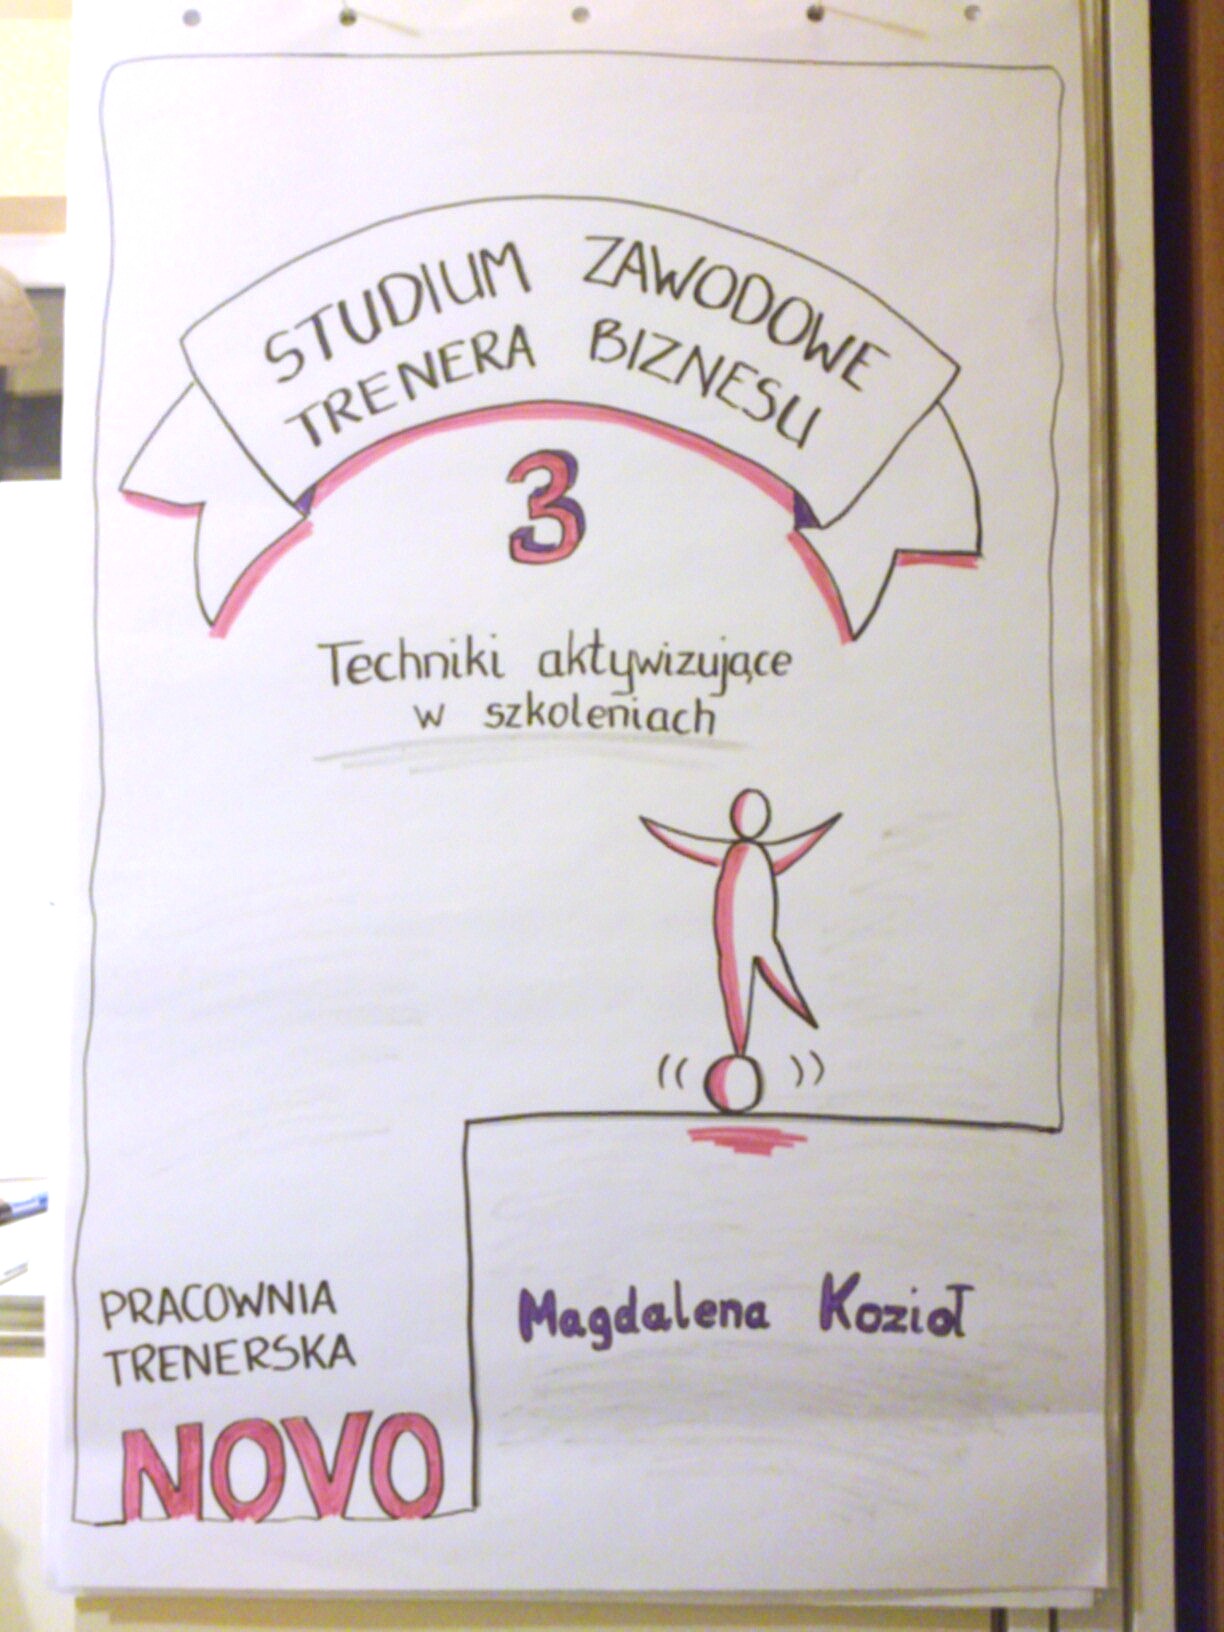 STUDIUM ZAWODOWE
TRENERA BIZNESU
3
Techniki aktywizujące
w szkoleniach
PRACOWNIA
TRENERSKA
NOVO
Magdalena Kozioł